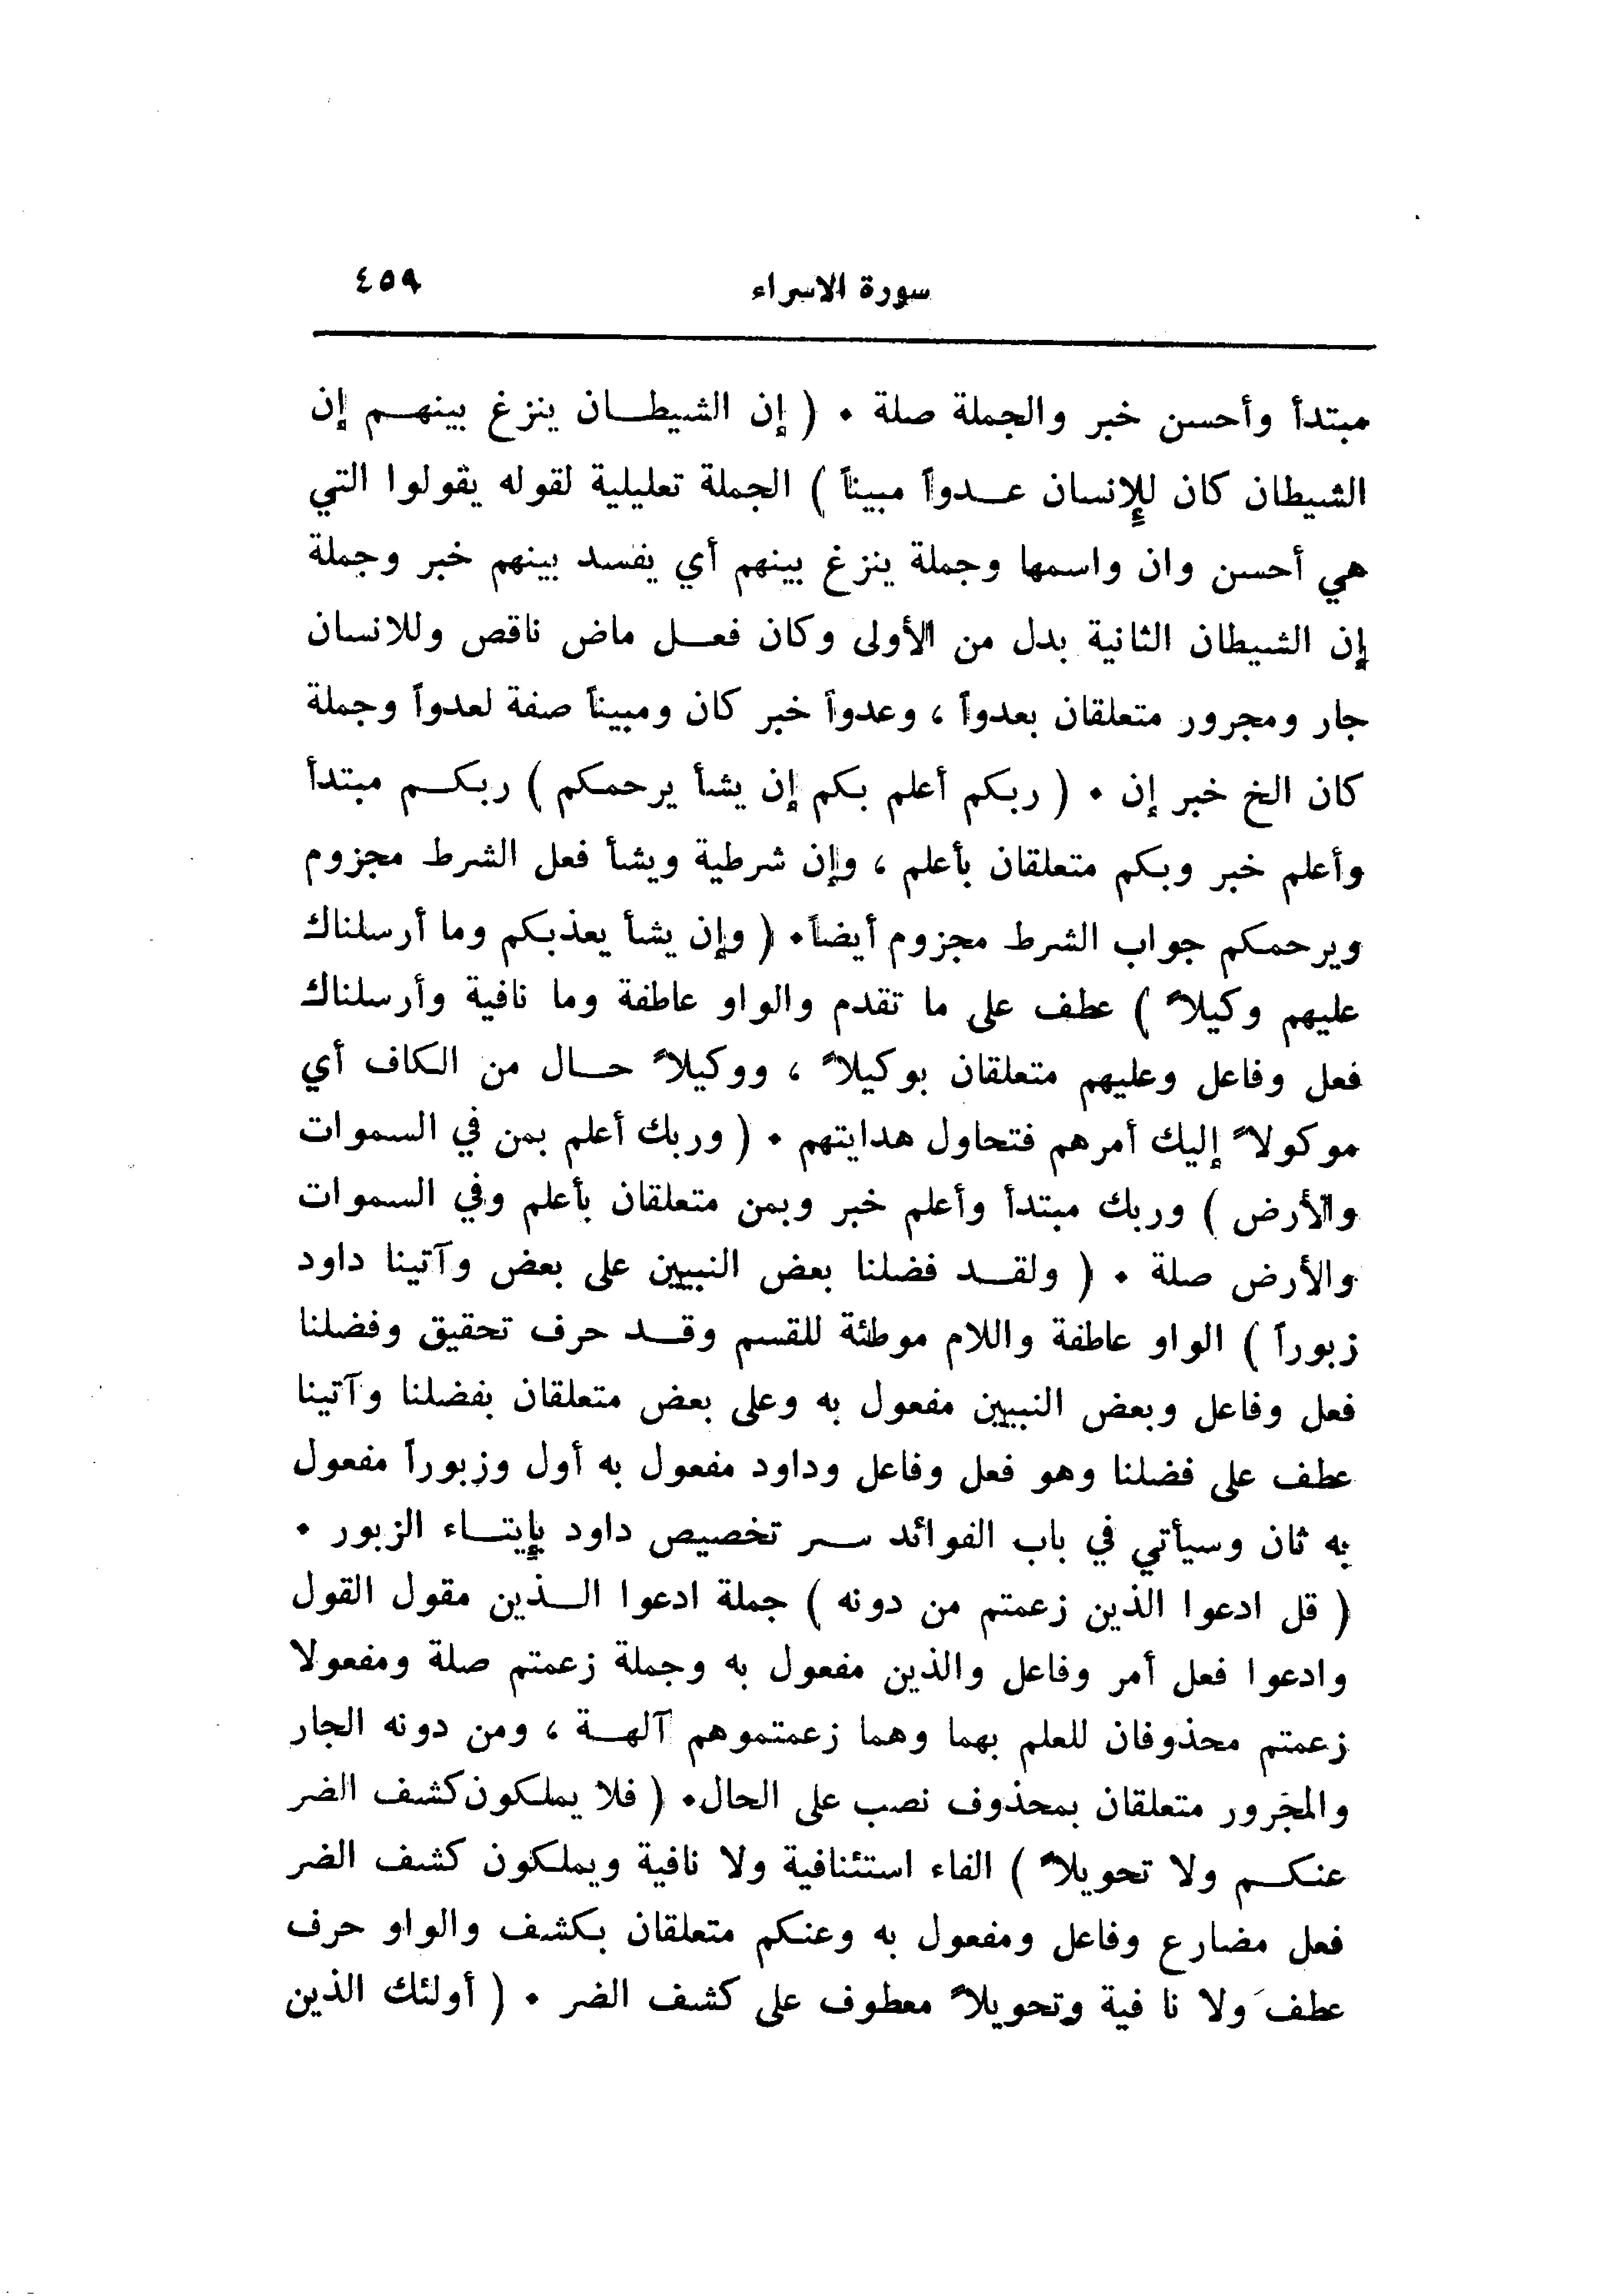 سورة الاسراء ٤٥٩
مبتدأ وأحسن خبر والجملة صلة ٠ ( إن الشيطــان ينزغ بينهــم إن
الشيطان كان للإنسان عــدواً مبيناً ) الجملة تعليلية لقوله يقولوا التي
هي أحسن وان واسمها وجملة ينزغ بينهم أي يفسد بينهم خبر وجملة
إن الشيطان الثانية بدل من الأولى وكان فعــل ماض ناقص وللانسان
جار ومجرور متعلقان بعدواً ، وعدواً خبر كان ومبيناً صفة لعدواً وجملة
كان الخ خبر إن ٠ ( ربكم أعلم بكم إن يشأ يرحمكم ) ربكــم مبتدأ
وأعلم خبر وبكم متعلقان بأعلم ، وإن شرطية ويشأ فعل الشرط مجزوم
ويرحمكم جواب الشرط مجزوم أيضاً٠ ( وإن يشأ يعذبكم وما أرسلناك
عليهم وكيلاً ) عطف على ما تقدم والواو عاطفة وما نافية وأرسلناك
فعل وفاعل وعليهم متعلقان بوكيلاً ، ووكيلاً حــال من الكاف أي
موكولاً إليك أمرهم فتحاول هدايتهم ٠ ( وربك أعلم بمن في السموات
والأرض ) وربك مبتدأ وأعلم خبر وبمن متعلقان بأعلم وفي السموات
والأرض صلة ٠ ( ولقــد فضلنا بعض النبيين على بعض وآتينا داود
زبوراً ) الواو عاطفة واللام موطئة للقسم وقــد حرف تحقيق وفضلنا
فعل وفاعل وبعض النبيين مفعول به وعلى بعض متعلقان بفضلنا وآتينا
عطف على فضلنا وهو فعل وفاعل وداود مفعول به أول وزبوراً مفعول
به ثان وسيأتي في باب الفوائد ســر تخصيص داود بإيتــاء الزبور ٠
( قل ادعوا الذين زعمتم من دونه ) جملة ادعوا الــذين مقول القول
وادعوا فعل أمر وفاعل والذين مفعول به وجملة زعمتم صلة ومفعولا
زعمتم محذوفان للعلم بهما وهما زعمتموهم آلهــة ، ومن دونه الجار
والمجرور متعلقان بمحذوف نصب على الحال٠ ( فلا يملكون كشف الضر
عنكــم ولا تحويلاً ) الفاء استئنافية ولا نافية ويملكون كشف الضر
فعل مضارع وفاعل ومفعول به وعنكم متعلقان بكشف والواو حرف
عطف ولا نا فية وتحويلاً معطوف على كشف الضر ٠ ( أولئك الذين